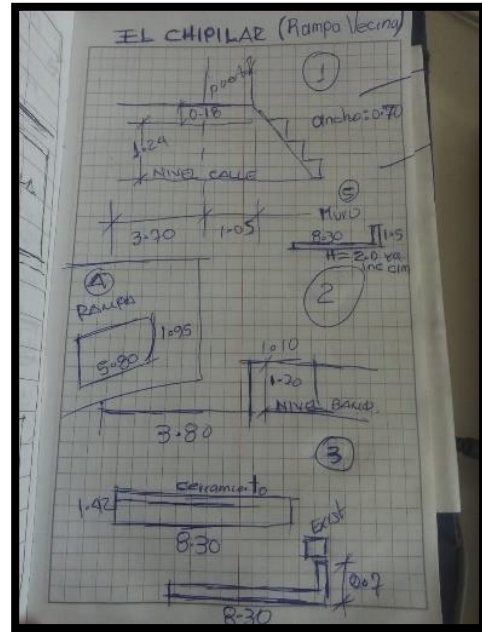 EL CHIPILAR (Rampa Vecina)
1
0.18
ancho=0.70
1.24
NIVEL CALLE
3.70
1.05
5
MURO
8.30
1.5
H=2.0 ya
inc cim
4
RAMPA
1.95
5.80
2
1.10
1.20
NIVEL
3.80
3
cerramiento
1.42
8.30
Exist
0.7
8.30